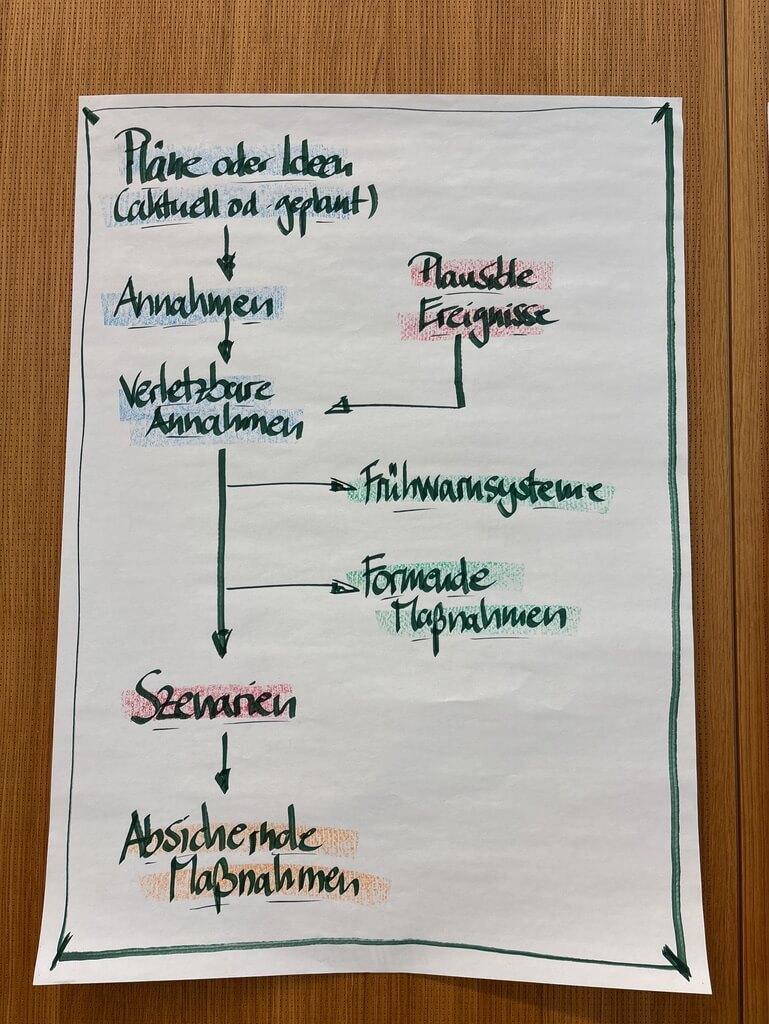 Pläne oder Ideen
(aktuell od. geplant)
Annahmen
Plausible
Ereignisse
Verletzbare
Annahmen
Frühwarnsysteme
Formende
Maßnahmen
Szenarien
Absichernde
Maßnahmen